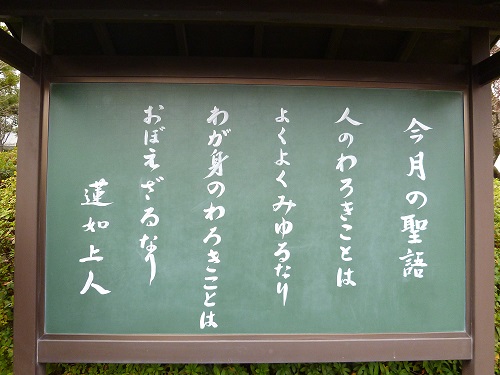 今月の聖語
人のわろきことは
よくよくみゆるなり
わが身のわろきことは
おぼえざるなり
蓮如上人